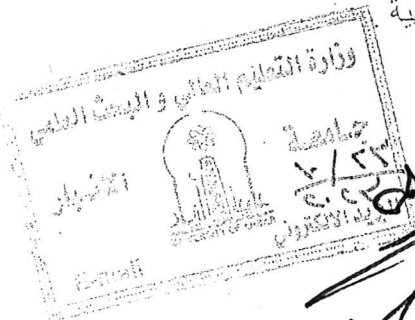 ية
وزارة التعليم العالي و البحث العلمي
جامعة
الانبار
٢٢ / ٢
البريد الالكتروني